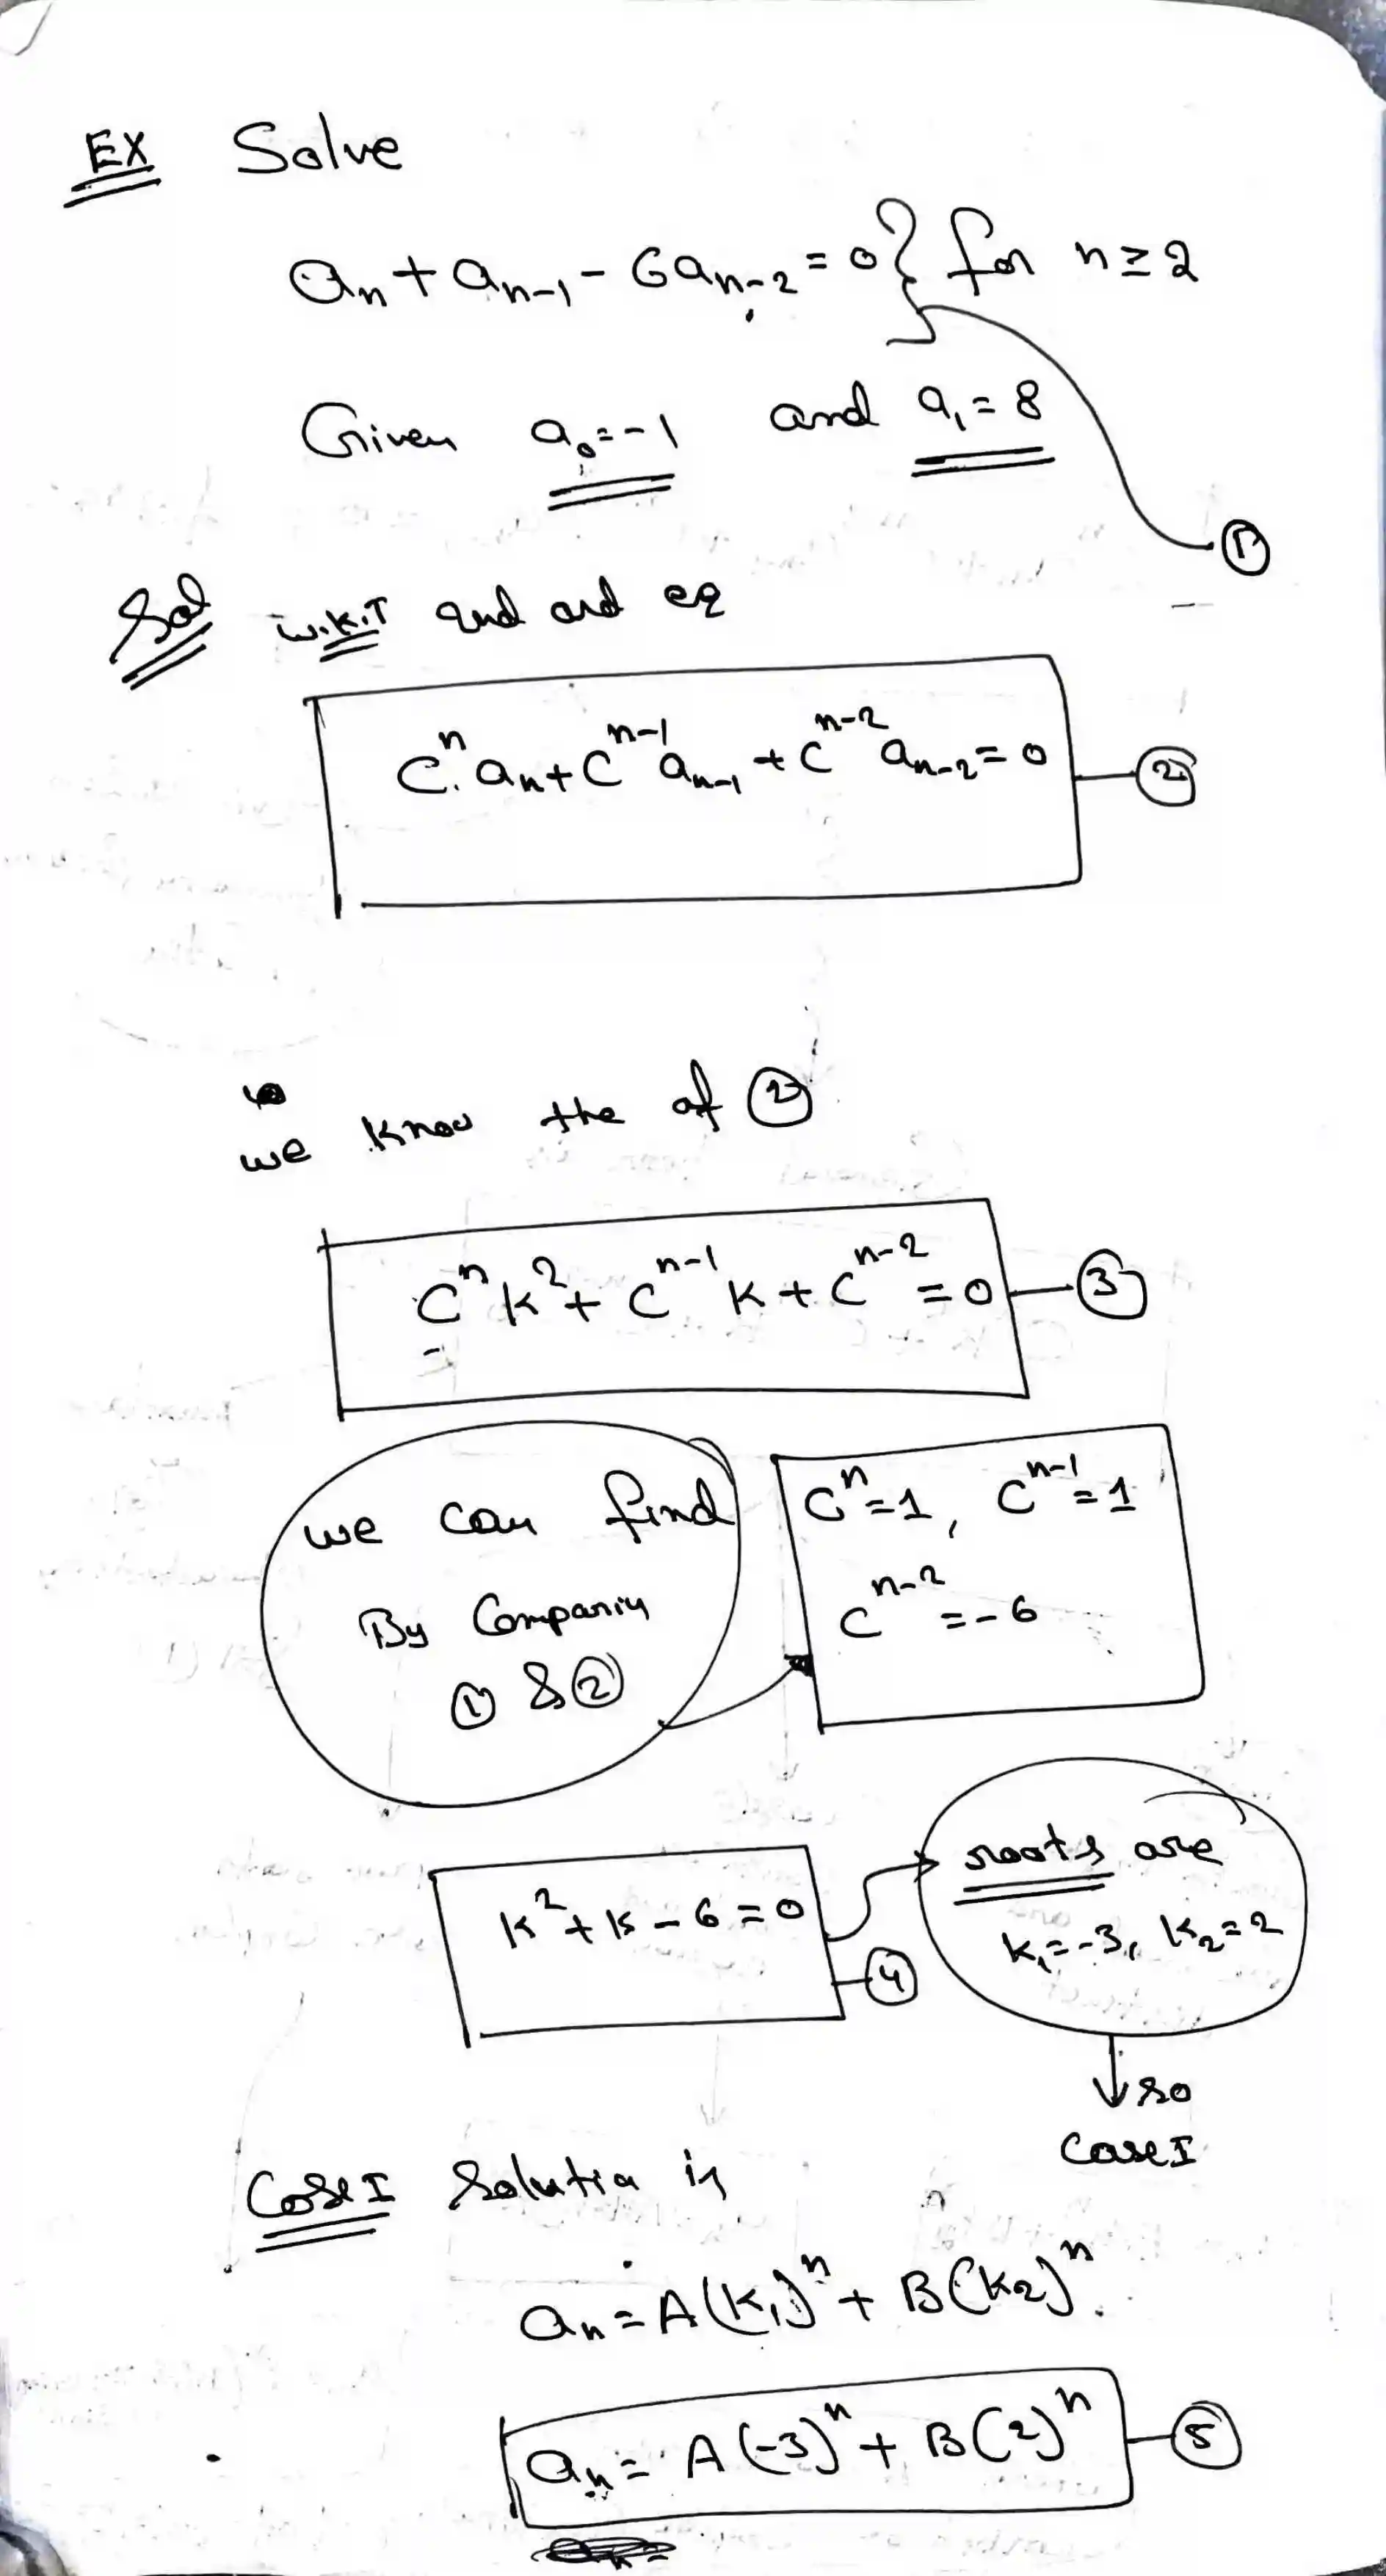 EX Solve
aₙ + aₙ₋₁ - 6aₙ₋₂ = 0 } for n ≥ 2
Given a₀ = -1 and a₁ = 8
①
Sol w.k.T 2nd ord eq
Cⁿ. aₙ + Cⁿ⁻¹ aₙ₋₁ + Cⁿ⁻² aₙ₋₂ = 0 — ②
we know the of ②
Cⁿ k² + Cⁿ⁻¹ k + Cⁿ⁻² = 0 — ③
we can find
By Comparin
① & ②
Cⁿ = 1, Cⁿ⁻¹ = 1
Cⁿ⁻² = -6
k² + k - 6 = 0
④
roots are
k₁ = -3, k₂ = 2
so
Case I
Case I Solution is
aₙ = A(k₁)ⁿ + B(k₂)ⁿ.
aₙ = A(-3)ⁿ + B(2)ⁿ — ⑤